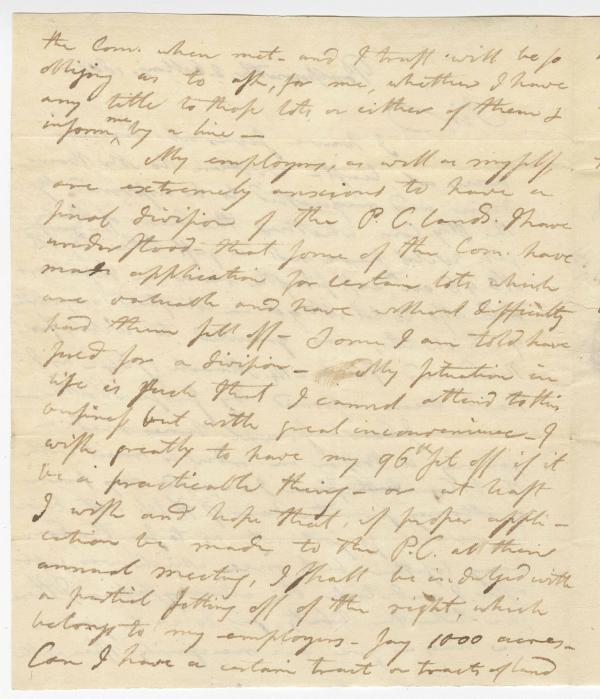 the Com. when met - and I trust will be so
obliging as to ask, for me, whether I have
any title to those lots or either of them &
inform me by a line -
My employers, as well as myself,
are extremely anxious to have a
final division of the P. C. lands. I have
understood that some of the Com. have
made application for certain lots which
are valuable and have without difficulty
had them sett off - Some I am told have
sued for a division - My situation in
life is such that I cannot attend to this
business but with great inconvenience - I
wish greatly to have my 96th set off if it
be a practicable thing - or at least
I wish and hope that, if proper appli-
cation be made to the P.C. at their
annual meeting, I shall be indulged with
a partial setting off of the right, which
belongs to my employers - say 1000 acres -
Can I have a certain tract or tracts of land